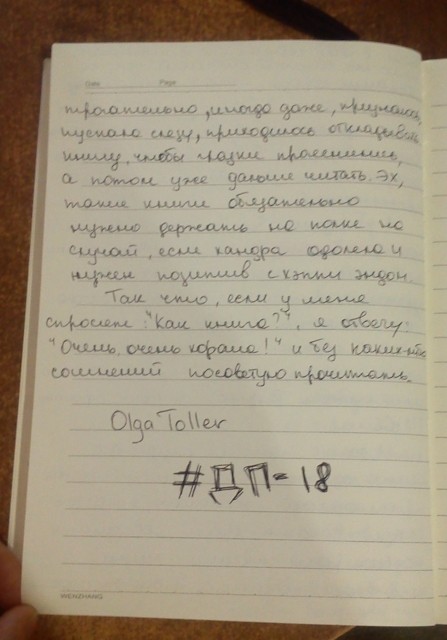 Date Page
трогательно, иногда даже, признаюсь,
пускала слезу, приходилось откладывать
книгу, чтобы глазки прояснились,
а потом уже дальше читать. Эх,
такие книги обязательно
нужно держать на полке на
случай, если хандра одолела и
нужен позитив с хэппи эндом.
Так что, если у меня
спросят: "Как книга?", я отвечу:
"Очень, очень хороша!" и без каких-либо
сомнений посоветую прочитать.
Olga Toller
#ДП-18
WENZHANG